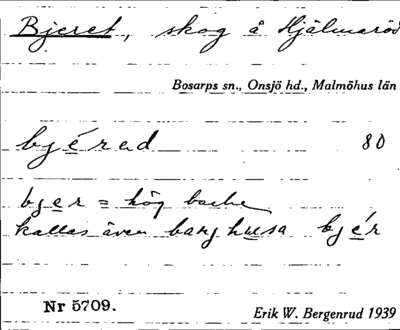 Bjeret, skog å Hjälmaröd
Bosarps sn., Onsjö hd., Malmöhus län
bjérad 80
bjer = hög backe
kallas även barjhusa bjér
Nr 5709.
Erik W. Bergenrud 1939